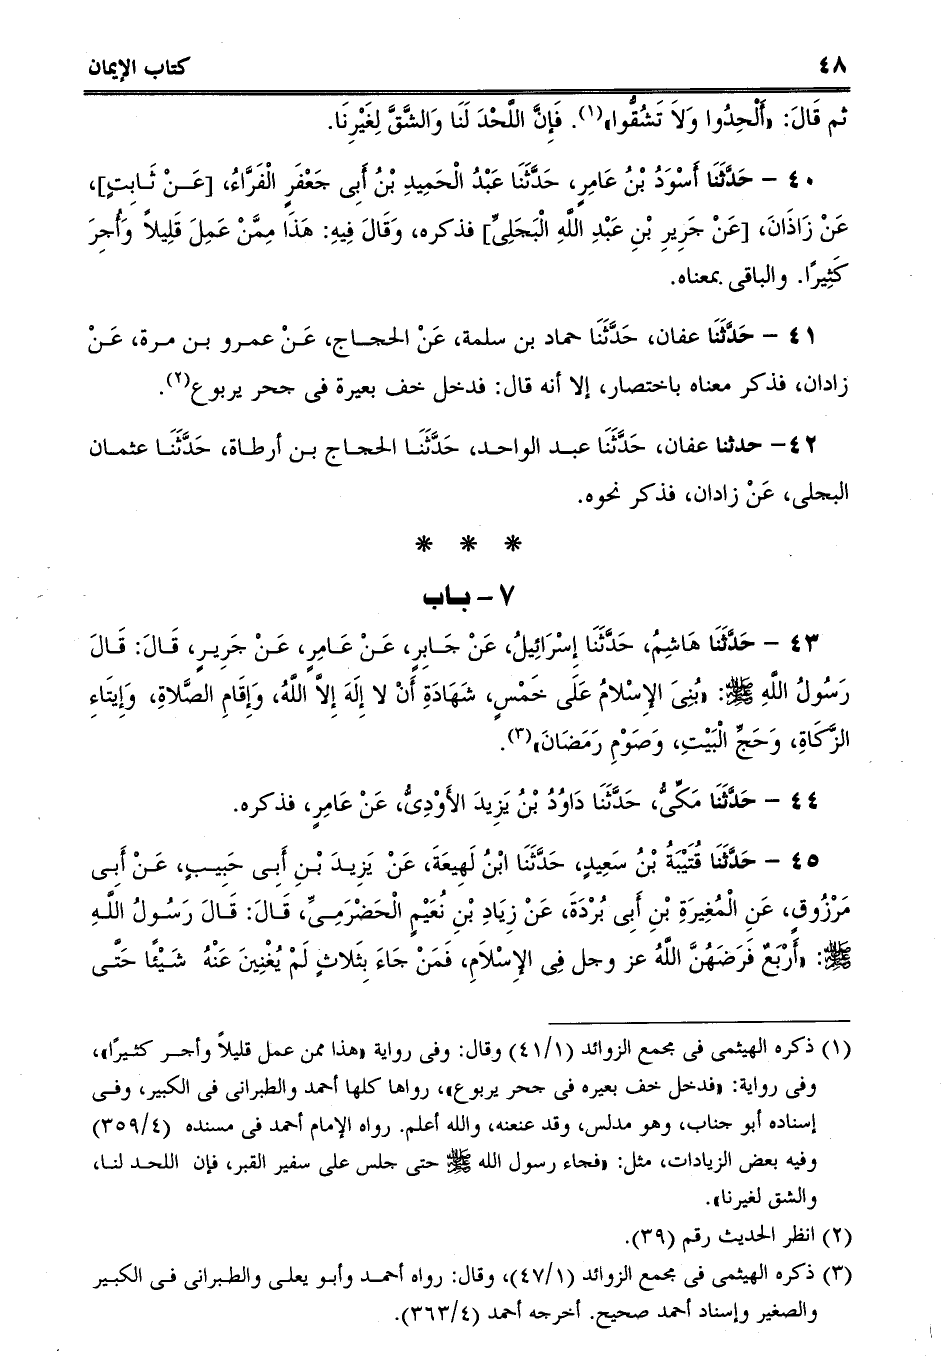 ٤٨
كتاب الإيمان
ثم قَالَ: «أَلْحِدُوا وَلاَ تَشُقُّوا»(١). فَإِنَّ اللَّحْدَ لَنَا وَالشَّقَّ لِغَيْرِنَا.
٤٠ – حَدَّثَنَا أَسْوَدُ بْنُ عَامِرٍ، حَدَّثَنَا عَبْدُ الْحَمِيدِ بْنُ أَبِى جَعْفَرٍ الْفَرَّاءُ، [عَنْ ثَابِتٍ]،
عَنْ زَاذَانَ، [عَنْ جَرِيرِ بْنِ عَبْدِ اللَّهِ الْبَجَلِىِّ] فذكره، وَقَالَ فِيهِ: هَذَا مِمَّنْ عَمِلَ قَلِيلاً وَأُجِرَ
كَثِيرًا. والباقى بمعناه.
٤١ – حَدَّثَنَا عفان، حَدَّثَنَا حماد بن سلمة، عَنْ الحجاج، عَنْ عمرو بن مرة، عَنْ
زادان، فذكر معناه باختصار، إلا أنه قال: فدخل خف بعيرة فى جحر يربوع(٢).
٤٢– حدثنا عفان، حَدَّثَنَا عبد الواحد، حَدَّثَنَا الحجاج بن أرطاة، حَدَّثَنَا عثمان
البجلى، عَنْ زادان، فذكر نحوه.
* * *
٧ – باب
٤٣ – حَدَّثَنَا هَاشِمُ، حَدَّثَنَا إِسْرَائِيلُ، عَنْ جَابِرٍ، عَنْ عَامِرٍ، عَنْ جَرِيرٍ، قَالَ: قَالَ
رَسُولُ اللَّهِ ﷺ: «بُنِىَ الإِسْلامُ عَلَى خَمْسٍ، شَهَادَةِ أَنْ لا إِلَهَ إِلاَّ اللَّهُ، وَإِقَامِ الصَّلاةِ، وَإِيتَاءِ
الزَّكَاةِ، وَحَجِّ الْبَيْتِ، وَصَوْمِ رَمَضَانَ»(٣).
٤٤ – حَدَّثَنَا مَكِّىُّ، حَدَّثَنَا دَاوُدُ بْنُ يَزِيدَ الأَوْدِىُّ، عَنْ عَامِرٍ، فذكره.
٤٥ – حَدَّثَنَا قُتَيْبَةُ بْنُ سَعِيدٍ، حَدَّثَنَا ابْنُ لَهِيعَةَ، عَنْ يَزِيدَ بْنِ أَبِى حَبِيبٍ، عَنْ أَبِى
مَرْزُوقٍ، عَنِ الْمُغِيرَةِ بْنِ أَبِى بُرْدَةَ، عَنْ زِيَادِ بْنِ نُعَيْمٍ الْحَضْرَمِىِّ، قَالَ: قَالَ رَسُولُ اللَّهِ
ﷺ: «أَرْبَعٌ فَرَضَهُنَّ اللَّهُ عز وجل فِى الإِسْلاَمِ، فَمَنْ جَاءَ بِثَلاثٍ لَمْ يُغْنِينَ عَنْهُ شَيْئًا حَتَّى
(١) ذكره الهيثمى فى مجمع الزوائد (٤١/١) وقال: وفى رواية «هذا ممن عمل قليلاً وأجر كثيرًا»،
وفى رواية: «فدخل خف بعيره فى جحر يربوع»، رواها كلها أحمد والطبرانى فى الكبير، وفى
إسناده أبو جناب، وهو مدلس، وقد عنعنه، والله أعلم. رواه الإمام أحمد فى مسنده (٣٥٩/٤)
وفيه بعض الزيادات، مثل: «فجاء رسول الله ﷺ حتى جلس على سفير القبر، فإن اللحد لنا،
والشق لغيرنا».
(٢) انظر الحديث رقم (٣٩).
(٣) ذكره الهيثمى فى مجمع الزوائد (٤٧/١)، وقال: رواه أحمد وأبو يعلى والطبرانى فى الكبير
والصغير وإسناد أحمد صحيح. أخرجه أحمد (٣٦٣/٤).